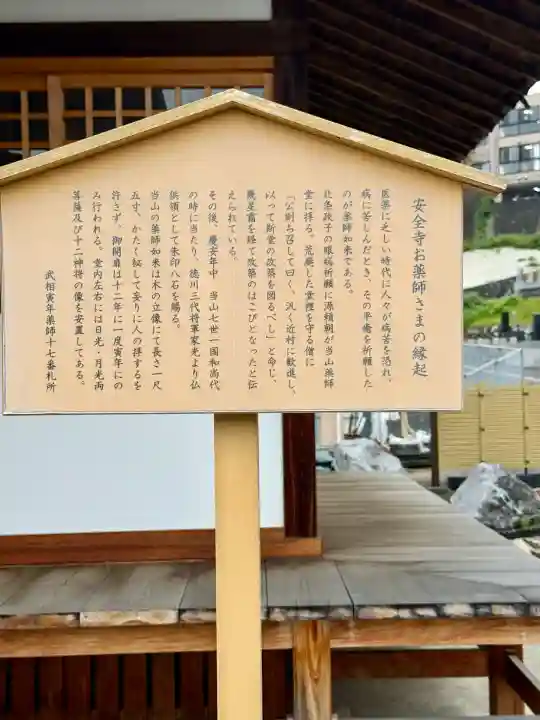 安全寺お薬師さまの縁起
医薬に乏しい時代に人々が病苦を恐れ、
病に苦しんだとき、その平癒を祈願した
のが薬師如来である。
北条政子の眼病祈願に源頼朝が当山薬師
堂に拝る。荒廃した堂裡を守る僧に
「公則ち召して曰く、汎く近村に歓進し、
以って斯堂の改築を図るべし」と命じ、
幾星霜を経て改築のはこびとなったと伝
えられている。
その後、慶安年中 当山七世一国和尚代
の時に当たり、徳川三代将軍家光より仏
供領として朱印八石を賜る。
当山の薬師如来は木の立像にて長さ一尺
五寸、かたく秘して妄りに人の拝するを
許さず、御開扉は十二年に一度寅年にの
み行われる。堂内左右には日光・月光両
菩薩及び十二神将の像を安置してある。
武相寅年薬師十七番札所